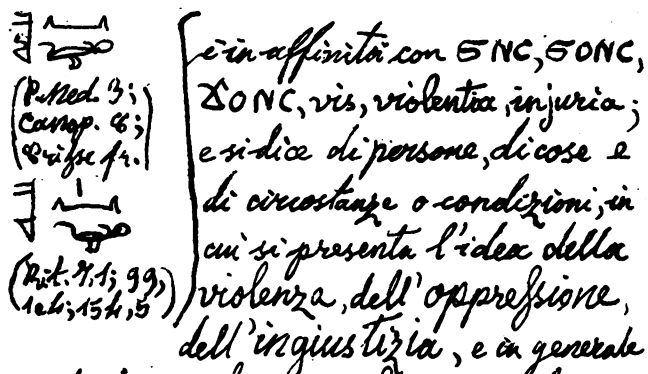 (P. Med. 3;
Canop. 8;
(Rit. 7,1; 99,
è in affinità con ϬNC, ϬONC,
ϪONC, vis, violentia, injuria;
e si dice di persone, di cose e
di circostanze o condizioni, in
cui si presenta l'idea della
violenza, dell'oppressione,
dell'ingiustizia, e in generale